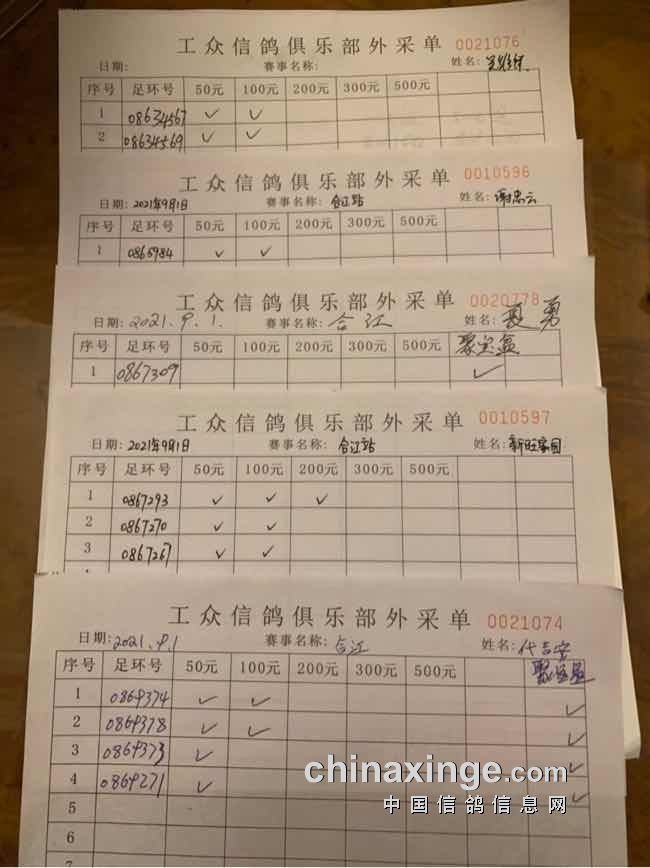 工众信鸽俱乐部外采单 0021076
日期: 赛事名称: 姓名:
序号 足环号 50元 100元 200元 300元 500元
1 08634567 ✓ ✓
2 08634569 ✓ ✓
工众信鸽俱乐部外采单 0010596
日期: 2021年9月1日 赛事名称: 合江站 姓名: 谢忠云
序号 足环号 50元 100元 200元 300元 500元
1 0865984 ✓ ✓
工众信鸽俱乐部外采单 0020778
日期: 2021.9.1. 赛事名称: 合江 姓名: 聂勇
序号 足环号 50元 100元 200元 300元 500元 聚宝盆
1 0867309 ✓
工众信鸽俱乐部外采单 0010597
日期: 2021年9月1日 赛事名称: 合江站 姓名: 新旺家园
序号 足环号 50元 100元 200元 300元 500元
1 0867293 ✓ ✓ ✓
2 0867270 ✓ ✓
3 0867267 ✓ ✓
工众信鸽俱乐部外采单 0021074
日期: 2021.9.1 赛事名称: 合江 姓名: 代吉安
序号 足环号 50元 100元 200元 300元 500元 聚宝盆
1 0869374 ✓ ✓ ✓
2 0869378 ✓ ✓ ✓
3 0869373 ✓ ✓
4 0869271 ✓ ✓
5
6
7
chinaxinge.com
中国信鸽信息网